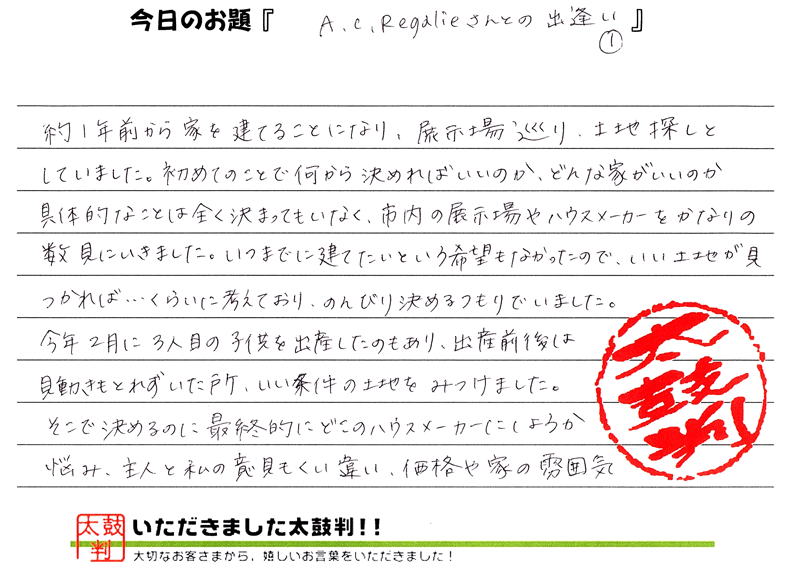 今日のお題『 A.C.Regalieさんとの出逢い ① 』
約1年前から家を建てることになり、展示場巡り、土地探しと
していました。初めてのことで何から決めればいいのか、どんな家がいいのか
具体的なことは全く決まってもいなく、市内の展示場やハウスメーカーをかなりの
数見にいきました。いつまでに建てたいという希望もなかったので、いい土地が見
つかれば…くらいに考えており、のんびり決めるつもりでいました。
今年2月に3人目の子供を出産したのもあり、出産前後は
見動きもとれずいた所、いい条件の土地をみつけました。
そこで決めるのに最終的にどこのハウスメーカーにしようか
悩み、主人と私の意見もくい違い、価格や家の雰囲気
太鼓判
太鼓判
いただきました太鼓判!!
大切なお客さまから，嬉しいお言葉をいただきました！